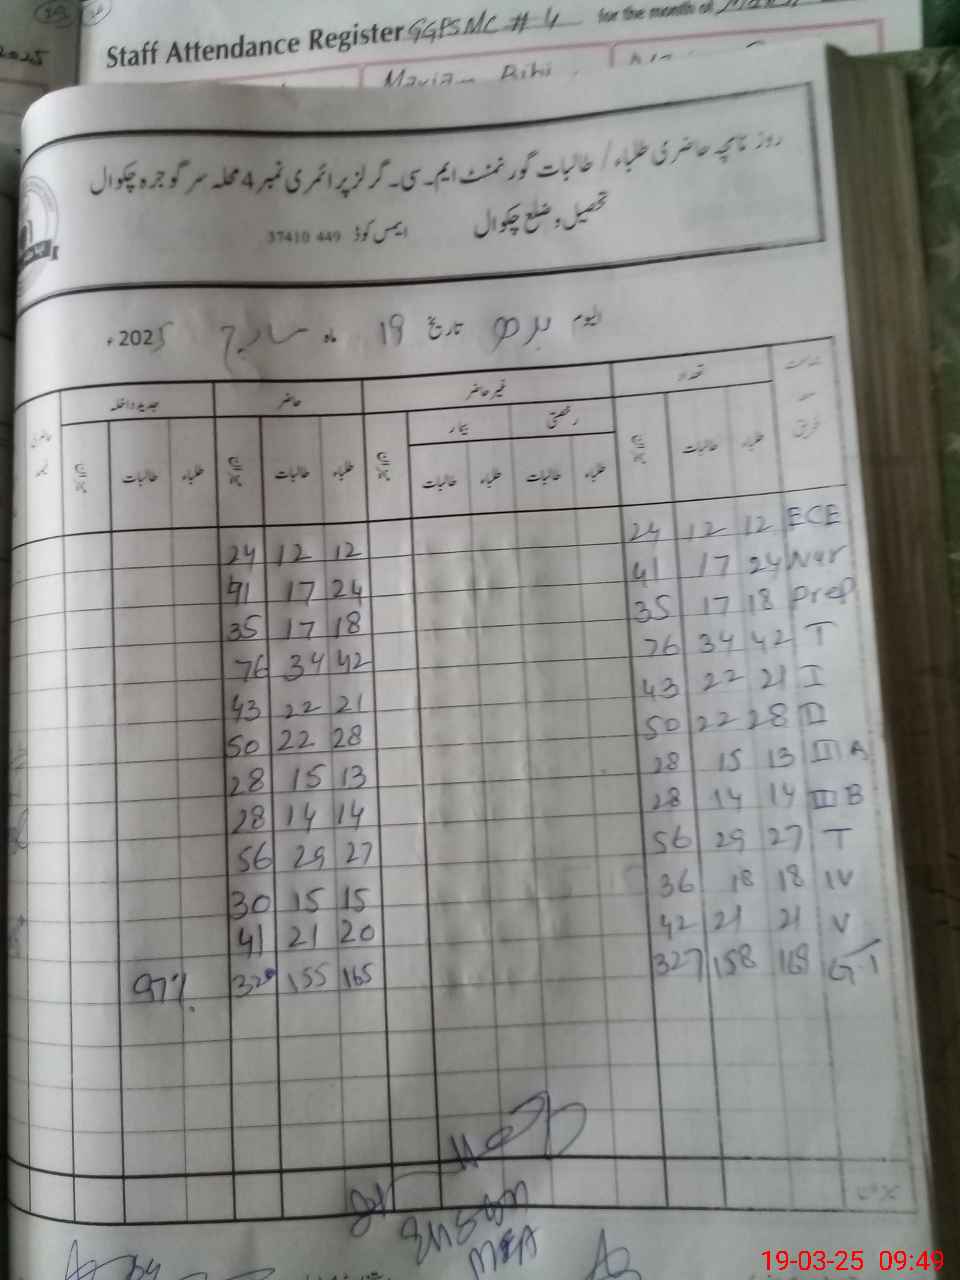 Staff Attendance Register GGPSMC # 4 for the month of
Mariam Bibi
2025
روزنامچہ حاضری طلباء / طالبات گورنمنٹ ایم۔سی۔گرلز پرائمری نمبر 4 محلہ سرگوجرہ چکوال
تحصیل و ضلع چکوال ایمس کوڈ 37410 449
الیوم بدھ تاریخ 19 ماہ مارچ 2025ء
تعداد غیر حاضر حاضر جدید داخلہ
رخصتی بیمار
طلباء طالبات میزان طلباء طالبات طلباء طالبات میزان طلباء طالبات میزان طلباء طالبات میزان
ECE 12 12 24 12 12 24
Nur 24 17 41 24 17 41
Prep 18 17 35 18 17 35
T 42 34 76 42 34 76
I 21 22 43 21 22 43
II 28 22 50 28 22 50
III A 13 15 28 13 15 28
III B 14 14 28 14 14 28
T 27 29 56 27 29 56
IV 18 18 36 15 15 30
V 21 21 42 20 21 41
G.T 169 158 327 165 155 320 97%
MEA
19-03-25 09:49